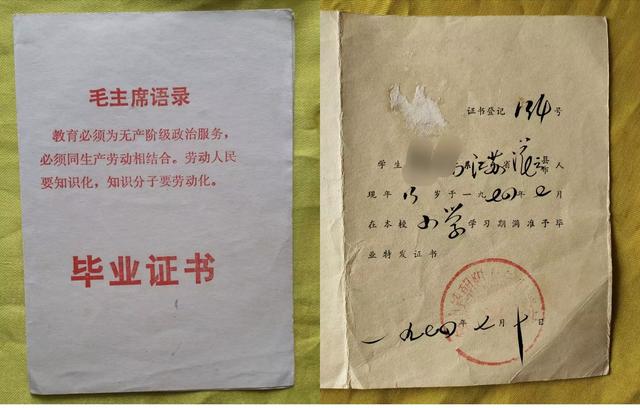 毛主席语录
教育必须为无产阶级政治服务，
必须同生产劳动相结合。劳动人民
要知识化，知识分子要劳动化。
毕业证书
证书登记 号
学生 江苏省灌云县市人
现年 岁于一九七四年七月
在本校小学学习期满准予毕
业特发证书
一九七四年七月十日